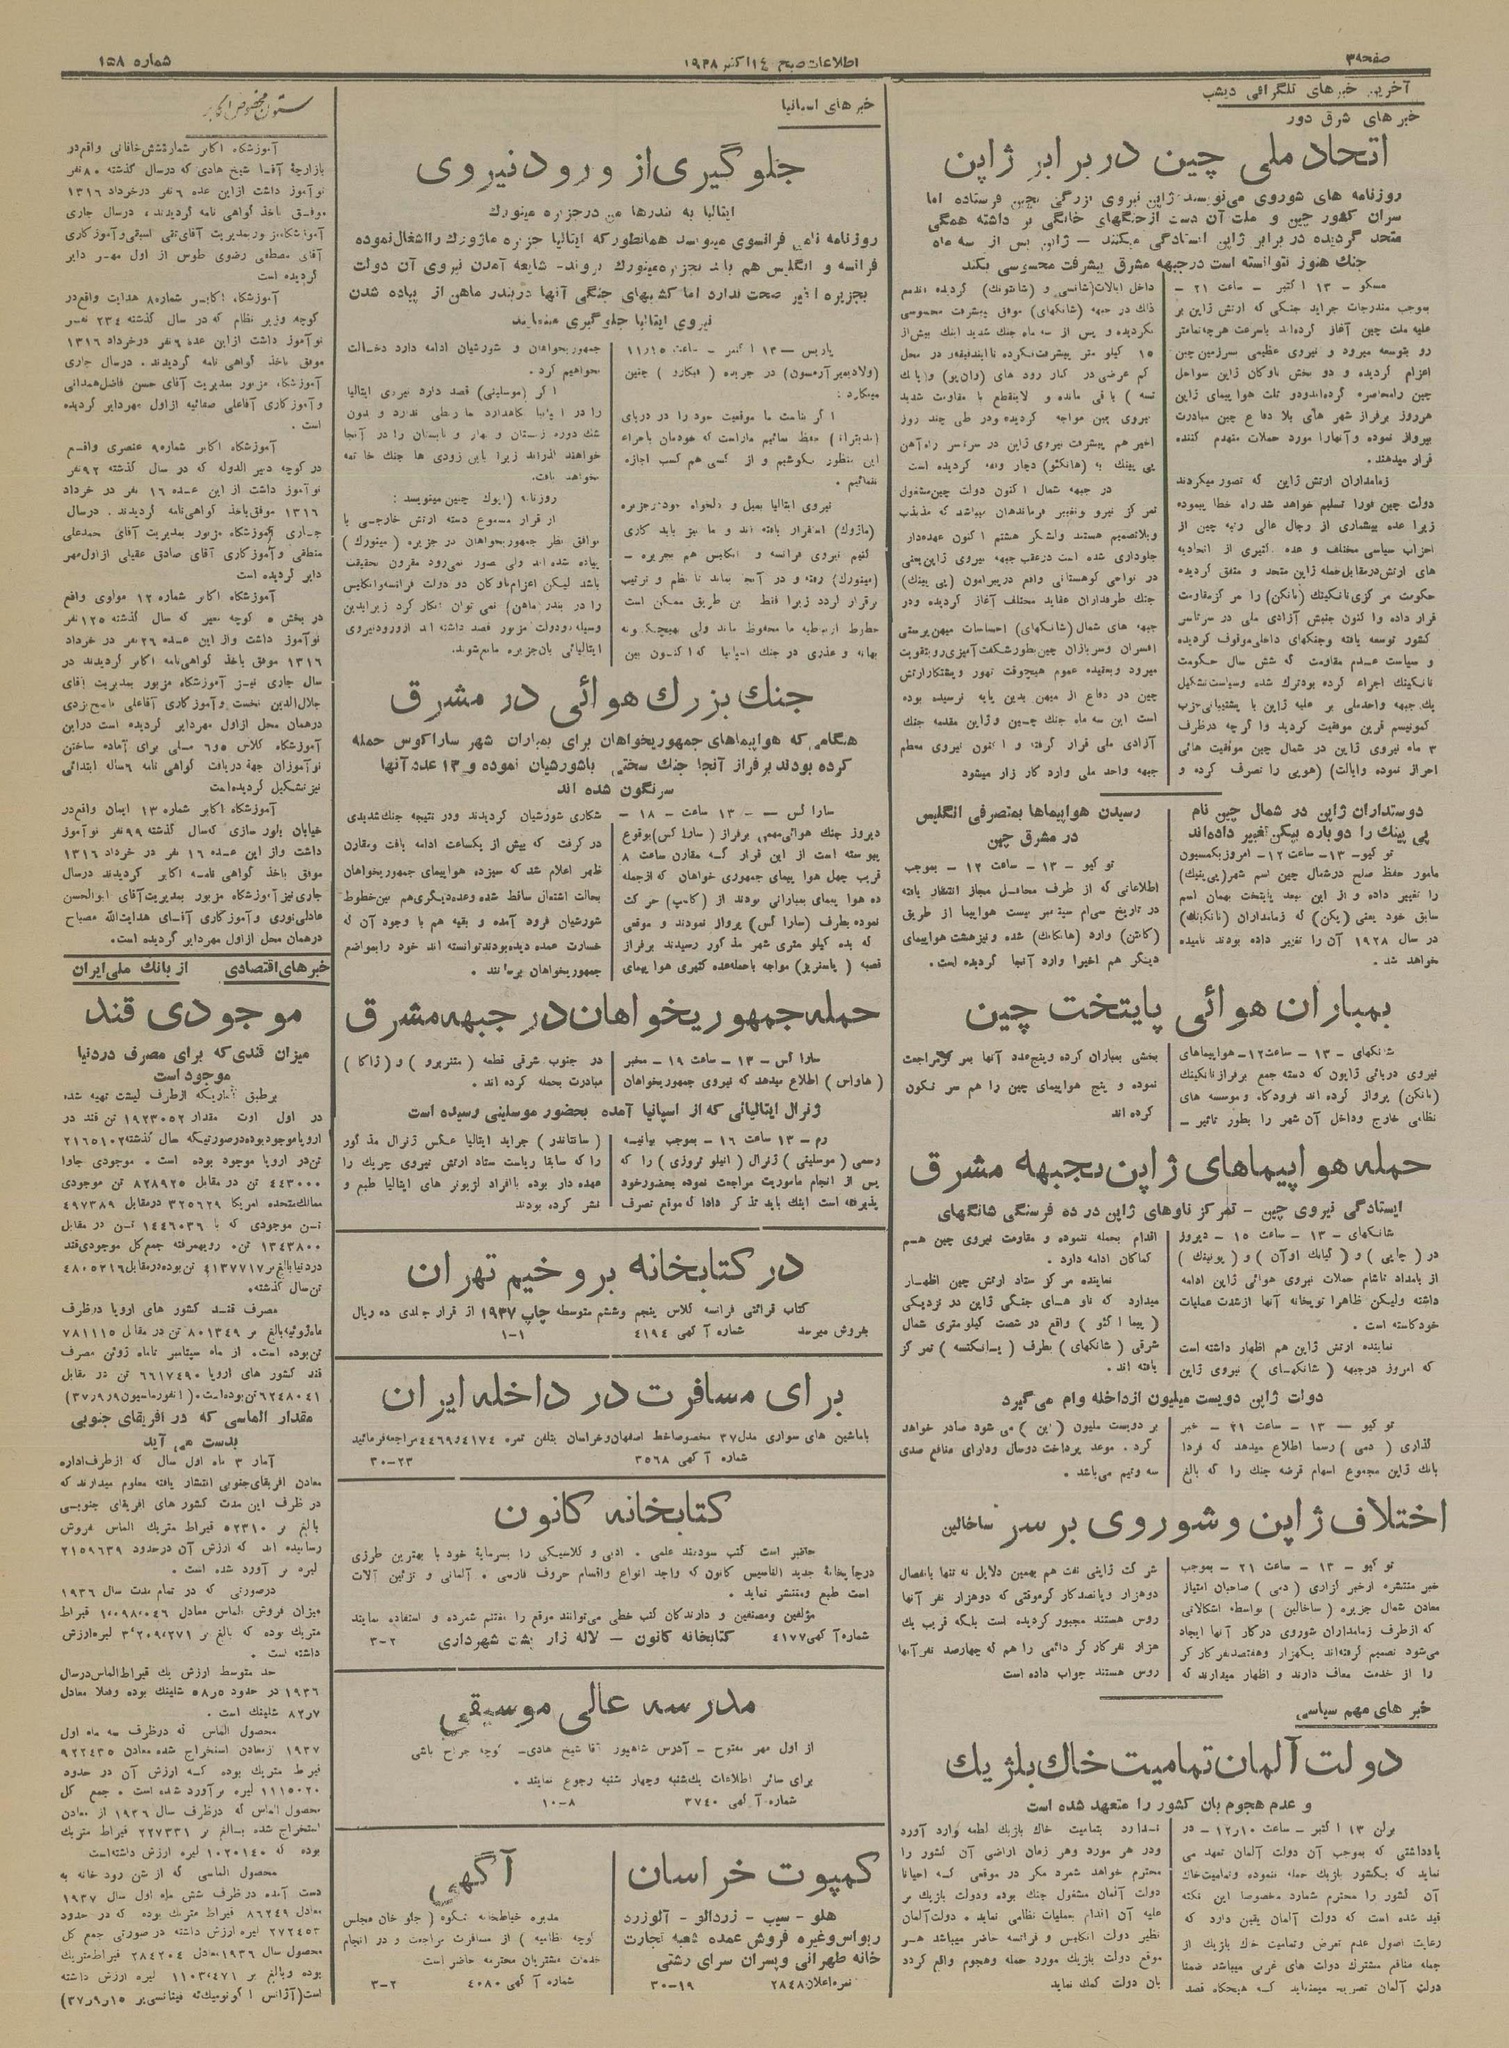 صفحه ۳
اطلاعات صبح ۱٤ اکتبر ۱۹۳۸
شماره ۱۵۸
آخرین خبرهای تلگرافی دیشب
خبرهای شرق دور
اتحاد ملی چین در برابر ژاپن
روزنامه های شوروی می‌نویسند: ژاپن نیروی بزرگی بچین فرستاده اما
سران کشور چین و ملت آن دست از جنگهای خانگی بر داشته همگی
متحد گردیده در برابر ژاپن ایستادگی میکنند — ژاپن پس از سه ماه
جنك هنوز نتوانسته است در جبهه مشرق پیشرفت محسوسی بکند
مسکو - ۱۳ اکتبر - ساعت ۲۱ -
بموجب مندرجات جراید جنگی که ارتش ژاپن بر
علیه ملت چین آغاز کرده‌اند باسرعت هرچه‌تمامتر
رو بتوسعه میرود و نیروی عظیمی بسرزمین چین
اعزام گردیده و دو بخش ناوگان ژاپن سواحل
چین رامحاصره کرده‌اندودو ثلث هوا پیمای ژاپن
هرروز برفراز شهر های بلا دفاع چین مبادرت
بپرواز نموده وآنهارا مورد حملات منهدم کننده
قرار میدهند.
زمامداران ارتش ژاپن که تصور میکردند
دولت چین فورا تسلیم خواهد شد راه خطا پیموده
زیرا عده بیشماری از رجال عالی رتبه چین از
احزاب سیاسی مختلف و عده کثیری از اتحادیه
های ارتش درمقابل‌حمله ژاپن متحد و متفق گردیده
حکومت مرکزی نانکینك (نانکن) را مرکز مقاومت
قرار داده و اکنون جنبش آزادی ملی در سرتاسر
کشور توسعه یافته وجنگهای داخلی موقوف گردیده
و سیاست عدم مقاومت که شش سال حکومت
نانکینك اجراء کرده بودترك شده وسیاست تشکیل
یك جبهه واحدملی بر علیه ژاپن با پشتیبانی حزب
کمونیسم قرین موفقیت گردید واگرچه درظرف
۳ ماه نیروی ژاپن در شمال چین موفقیت هائی
احراز نموده وایالت (هوپی را تصرف کرده و
داخل ایالات (شانسی) و (شانتونك) گردیده اند مع
ذالك در جبهه (شانگهای) موفق بپیشرفت محسوسی
نگردیده و پس از سه ماه جنك شدید اینك بیش‌از
۱۵ کیلو متر پیشرفت نکرده تااینددقیقه در محل
کم عرضی در کنار رود های (وان‌پو) و (یانك
تسه) باقی مانده و لاینقطع با مقاوت شدید
نیروی چین مواجه گردیده‌ودر طی چند روز
اخیر هم پیشرفت نیروی ژاپن در سرتاسر راه‌آهن
پی پینك به (هانکئو) دچار وقفه گردیده است
در جبهه شمال اکنون دولت چین‌مشغول
تمرکز نیرو وتغییر فرماندهان میباشد که مذبذب
وبلاتصمیم هستند ولشگر هشتم اکنون عهده‌دار
جلوداری شده است درعقب جبهه نیروی ژاپن‌یعنی
در نواحی کوهستانی واقع درپیرامون (پی پینك)
جنك طرفداران عقاید مختلف آغاز گردیده ودر
جبهه های شمال (شانگهای) احساسات میهن پرستی
افسران وسربازان چین بطور شگفت آمیزی رو بتقویت
میرود وبعقیده عموم هیچوقت تهور وپشتکارارتش
چین در دفاع از میهن بدین پایه نرسیده بوده
است این سه ماه جنك چین و ژاپن مقدمه جنك
آزادی ملی قرار گرفته و اکنون نیروی معظم
جبهه واحد ملی وارد کار زار میشود
دوستداران ژاپن در شمال چین نام
پی پینك را دوباره بپیکن تغییر داده‌اند
تو کیو - ۱۳ - ساعت ۱۲ - امروز بکمسیون
مامور حفظ صلح درشمال چین اسم شهر (پی‌پینك)
را تغییر داده و از این ببعد پایتخت بهمان اسم
سابق خود یعنی (پکن) که زمامداران (نانکینك)
در سال ۱۹۲۸ آن را تغییر داده بودند نامیده
خواهد شد.
رسیدن هواپیماها بمتصرفی انگلیس
در مشرق چین
تو کیو - ۱۳ - ساعت ۱۲ - بموجب
اطلاعاتی که از طرف محافل مجاز انتظار یافته
در تاریخ سی‌ام سپتامبر بیست هواپیما از طریق
(کانتن) وارد (هانکانك) شده ونیزهشت هواپیمای
دیگر هم اخیرا وارد آنجا گردیده است.
بمباران هوائی پایتخت چین
شانگهای - ۱۳ - ساعت ۱۲ - هواپیماهای
نیروی دریائی ژاپون که دسته جمع برفراز نانکینك
(نانکن) پرواز کرده اند فرودگاه وموسسه های
نظامی خارج وداخل آن شهر را بطور تاثیر -
بخشی بمباران کرده وپنج‌عدد آنها بمرکزمراجعت
نموده و پنج هواپیمای چین را هم سر نگون
کرده اند
حمله هواپیماهای ژاپن بجبهه مشرق
ایستادگی نیروی چین - تمرکز ناوهای ژاپن در ده فرسنگی شانگهای
شانگهای - ۱۳ - ساعت ۱۵ - دیروز
در (چاپی) و (کیانك اوآن) و (پوتینك)
از بامداد تاشام حملات نیروی هوائی ژاپن ادامه
داشته ولیکن ظاهرا توپخانه آنها ازشدت عملیات
خودکاسته است.
نماینده ارتش ژاپن هم اظهار داشته است
که امروز درجبهه (شانگهای) نیروی ژاپن
اقدام بحمله ننموده و مقاومت نیروی چین هم
کماکان ادامه دارد.
نماینده مرکز ستاد ارتش چین اظهار
میدارد که ناو های جنگی ژاپن در نزدیکی
(پیما اکئو) واقع در شصت کیلو متری شمال
شرقی (شانگهای) بطرف (یانکتسه) تمرکز
یافته اند.
دولت ژاپن دویست میلیون از داخله وام می‌گیرد
تو کیو — ۱۳ - ساعت ۲۱ - خبر
گذاری (دمی) رسما اطلاع میدهد که فردا
بانك ژاپن مجموع اسهام قرضه جنك را که بالغ
بر دویست ملیون (ین) می شود صادر خواهد
کرد. موعد پرداخت دوسال ودارای منافع صدی
سه ونیم می‌باشد.
اختلاف ژاپن و شوروی بر سر ساخالین
تو کیو - ۱۳ - ساعت ۲۱ - بموجب
خبر منتشره ازخبر گزاری (دمی) صاحبان امتیاز
معادن شمال جزیره (ساخالین) بواسطه اشکالاتی
که ازطرف زمامداران شوروی درکار آنها ایجاد
می‌شود تصمیم گرفته‌اند یکهزار وهفتصدنفر کار گر
را از خدمت معاف دارند و اظهار میدارند که
شرکت ژاپنی نفت هم بهمین دلایل نه تنها باتفصال
دوهزار وپانصدکار گرموقتی که دوهزار نفر آنها
روس هستند مجبور گردیده است بلکه قریب یك
هزار نفرکار گر دائمی را هم که چهارصد نفرآنها
روس هستند جواب داده است
خبر های مهم سیاسی
دولت آلمان تمامیت خاك بلژیك
و عدم هجوم بان کشور را متعهد شده است
برلن ۱۳ اکتبر - ساعت ۱۲٫۱۰ - در
یادداشتی که بموجب آن دولت آلمان تعهد می
نماید که بکشور بلژیك حمله ننموده وتمامیت‌خاك
آن کشور را محترم شمارد مخصوصا این نکته
قید شده است که دولت آلمان یقین دارد که
رعایت اصول عدم تعرض وتمامیت خاك بلژیك از
جمله منافع مشترك دولت های غربی میباشد ضمنا
دولت آلمان تصریح مینماید که هیچگاه قصد
ندارد بتمامیت خاك بلژیك لطمه وارد آورد
ودر هر مورد وهر زمان اراضی آن کشور را
محترم خواهد شمرد مگر در موقعی که احیانا
دولت آلمان مشغول جنك بوده ودولت بلژیك بر
علیه آن اقدام بعملیات نظامی نماید. دولت‌آلمان
نظیر دولت انگلیس و فرانسه حاضر میباشد هر
موقع دولت بلژیك مورد حمله وهجوم واقع گردد
بان دولت کمك نماید
خبر های اسپانیا
جلوگیری از ورود نیروی
ایتالیا به بندر ماهن در جزیره مینورك
روزنامه نامی فرانسوی مینویسد همانطور که ایتالیا جزیره ماژورك را اشغال‌نموده
فرانسه و انگلیس هم باید بجزیره مینورك بروند - شایعه آمدن نیروی آن دولت
بجزیره اخیر صحت ندارد اما کشتیهای جنگی آنها در بندر ماهن از پیاده شدن
نیروی ایتالیا جلوگیری مینمایند
پاریس — ۱۳ اکتبر - ساعت ۱۱٫۱۵
(ولادیمیر آرمسون) در جریده (فیگارو) چنین
مینگارد:
اگر بنااست ما موقعیت خود را در دریای
(مدیترانه) حفظ نمائیم مارااست که خودمان باجراء
این منظور بکوشیم و از کسی هم کسب اجازه
ننمائیم.
نیروی ایتالیا بمیل و دلخواه خود درجزیره
(ماژورك) استقرار یافته اند و ما نیز باید کاری
کنیم نیروی فرانسه و انگلیس هم بجزیره -
(مینورك) رفته و در آنجا بماند تا نظم و ترتیب
برقرار گردد زیرا فقط بن طریق ممکن است
خطوط ارتباطیه ما محفوظ ماند ولی بهیچگونه
بهانه و عذری در جنك اسپانیا که اکنون بین
جمهوریخواهان و شورشیان ادامه دارد دخالت
نخواهیم کرد.
اگر (موسلینی) قصد دارد نیروی ایتالیا
را در اسپانیا نگاهدارد بما ربطی ندارد و بدون
شك دوره زمستان و بهار و تابستان را در آنجا
خواهند گذراند زیرا باین زودی ها جنك خاتمه
نخواهد یافت.
روزنامه (اپوك) چنین مینویسد:
از قرار مسموع دسته ارتش خارجی با
توافق نظر جمهوریخواهان در جزیره (مینورك)
پیاده شده اند ولی تصور نمی‌رود مقرون بحقیقت
باشد لیکن اعزام ناوگان دو دولت فرانسه‌وانگلیس
را در بندر (ماهن) نمی توان انکار کرد زیرابدین
وسیله‌دودولت مزبور قصد داشته اند ازورودنیروی
ایتالیائی بان‌جزیره مانع‌شوند.
جنك بزرك هوائی در مشرق
هنگامی که هواپیماهای جمهوریخواهان برای بمباران شهر ساراکوس حمله
کرده بودند بر فراز آنجا جنك سختی باشورشیان نموده و ۱۳ عدد آنها
سرنگون شده اند
سارا گس — ۱۳ - ساعت ۱۸ -
دیروز جنك هوائی مهمی برفراز (سارا گس) بوقوع
پیوسته است از این قرار که مقارن ساعت ۸
قریب چهل هوا پیمای جمهوری خواهان که ازجمله
ده هوا پیمای بمبارانی بودند از (کاسپ) حرکت
نموده بطرف (سارا گس) پرواز نمودند و موقعی
که بده کیلو متری شهر مذکور رسیدند برفراز
قصبه (پاسنریز) مواجه باحمله‌عده کثیری هوا پیمای
شکاری شورشیان گردیدند ودر نتیجه جنك‌شدیدی
در گرفت که بیش از یکساعت ادامه یافت ومقارن
ظهر اعلام شد که سیزده هواپیمای جمهوریخواهان
بحالت اشتعال ساقط شده وعده‌دیگری‌هم بین‌خطوط
شورشیان فرود آمده و بقیه هم با وجود آن که
خسارت عمده دیده‌بودندتوانسته اند خود رابمواضع
جمهوریخواهان برسانند.
حمله جمهوریخواهان در جبهه مشرق
سارا گس - ۱۳ - ساعت ۱۹ - مخبر
(هاواس) اطلاع میدهد که نیروی جمهوریخواهان
در جنوب شرقی قطعه (متنربرو) و (زاکا)
مبادرت بحمله کرده اند.
ژنرال ایتالیائی که از اسپانیا آمده بحضور موسلینی رسیده است
رم - ۱۳ ساعت ۱۶ - بموجب بیانیه
رسمی (موسلینی) ژنرال (اتیلو تروزی) را که
پس از انجام ماموریت مراجعت نموده بحضورخود
پذیرفته است اینك باید تذکر دادا که موقع تصرف
(سانتاندر) جراید ایتالیا عکس ژنرال مذکور
را که سابقا ریاست ستاد ارتش نیروی چریك را
عهده دار بوده باافراد لژیونر های ایتالیا طبع و
نشر کرده بودند
در کتابخانه بروخیم تهران
کتاب قرائتی فرانسه کلاس پنجم وششم متوسطه چاپ ۱۹۳۷ از قرار جلدی ده ریال
بفروش میرسد شماره آگهی ٤۱۹٤ ۱-۱
برای مسافرت در داخله ایران
باماشین های سواری مدل ۳۷ مخصوصاخط اصفهان‌وخراسان بتلفن نمره ٤۱۷٤ و ٤٤٦۹ مراجعه فرمائید
شماره آگهی ۳۵۶۸ ۲۳-۳۰
کتابخانه کانون
حاضر است کتب سودمند علمی. ادبی و کلاسیکی را بسرمایه خود با بهترین طرزی
درچاپخانهٔ جدید التاسیس کانون که واجد انواع واقسام حروف فارسی. آلمانی و تزئین آلات
است طبع ومنتشر نماید.
مؤلفین ومصنفین و دارندگان کتب خطی می‌توانند موقع را مغتنم شمرده و استفاده نمایند
شماره آگهی ٤۱۷۷ کتابخانه کانون — لاله زار پشت شهرداری ۲-۳
مدرسه عالی موسیقی
از اول مهر مفتوح - آدرس شاهپور آقا شیخ هادی - کوچه جراح باشی
برای سائر اطلاعات یکشنبه وچهار شنبه رجوع نمایند.
شماره آگهی ۳۷٤۰ ۸-۱۰
کمپوت خراسان
هلو - سیب - زردالو - آلوزرد
ریواس وغیره فروش عمده شعبه تجارت
خانه طهرانی وپسران سرای رشتی
نمره اعلان ۲۸٤۸ ۱۹-۳۰
آگهی
مدیره خیاطخانه شکوه (جلو خان مجلس
کوچه نظامیه) از مسافرت مراجعت و در انجام
خدمات مشتریان محترمه حاضر است
شماره آگهی ٤۰۸۰ ۲-۳
ستون مخصوص اکابر
آموزشگاه اکابر شماره‌شش خاقانی واقع‌در
بازارچهٔ آقا شیخ هادی که درسال گذشته ۸۰ نفر
نوآموز داشت ازاین عده ۶ نفر درخرداد ۱۳۱۶
موفق باخذ گواهی نامه گردیدند، درسال جاری
آموزشگاه مزبور بمدیریت آقای‌تقی اسبقی وآموزکاری
آقای مصطفی رضوی طوس از اول مهر دایر
گردیده است
آموزشگاه اکابر شماره ۸ هدایت واقع‌در
کوچه وزیر نظام که در سال گذشته ۲۳٤ نفر
نوآموز داشت ازاین عده ۶ نفر درخرداد ۱۳۱۶
موفق باخذ گواهی نامه گردیدند. درسال جاری
آموزشگاه مزبور بمدیریت آقای حسن فاضل‌همدانی
وآموزکاری آقاعلی صفائیه ازاول مهردایر گردیده
است.
آموزشگاه اکابر شماره ۹ عنصری واقع
در کوچه دبیر الدوله که در سال گذشته ۹۲ نفر
نوآموز داشت از این عده ۱۶ نفر در خرداد
۱۳۱۶ موفق باخذ گواهی‌نامه گردیدند. درسال
جاری آموزشگاه مزبور بمدیریت آقای محمدعلی
منطقی وآموزکاری آقای صادق عقیلی ازاول‌مهر
دایر گردیده است
آموزشگاه اکابر شماره ۱۲ مولوی واقع
در بخش ۵ کوچه معیر که سال گذشته ۱۲۵ نفر
نوآموز داشت واز این عده ۲۶ نفر در خرداد
۱۳۱۶ موفق باخذ گواهی‌نامه اکابر گردیدند در
سال جاری نیز آموزشگاه مزبور بمدیریت آقای
جلال‌الدین نخست وآموزکاری آقاعلی ناصح‌یزدی
درهمان محل ازاول مهردایر گردیده است دراین
آموزشگاه کلاس ۵و۶ مسلی برای آماده ساختن
نوآموزان جهة دریافت گواهی نامه ۶ ساله ابتدائی
نیزتشکیل گردیده‌است
آموزشگاه اکابر شماره ۱۳ ایمان واقع‌در
خیابان بلور سازی که‌سال گذشته ۹۹ نفر نوآموز
داشت واز این عده ۱۶ نفر در خرداد ۱۳۱۶
موفق باخذ گواهی نامه اکابر گردیدند درسال
جاری‌نیز آموزشگاه مزبور بمدیریت‌آقای ابوالحسن
عادلی‌نوری وآموزکاری آقای هدایت‌الله مصباح
درهمان محل ازاول مهردایر گردیده است.
خبرهای اقتصادی از بانك ملی ایران
موجودی قند
میزان قندی که برای مصرف در دنیا
موجود است
برطبق آماریکه ازطرف لیشت تهیه شده
در اول اوت مقدار ۱۹۲۳۰۵۲ تن قند در
اروپاموجود بوده‌درصورتیکه سال گذشته ۲۱۶۵۱۰۲
تن‌در اروپا موجود بوده است. موجودی جاوا
٤٤۳۰۰۰ تن در مقابل ۸۲۸۹۲۵ تن موجودی
ممالك‌متحده امریکا ۳۲۵۶۲۹ درمقابل ٤۹۷۳۸۹
تن موجودی که با ۱٤٤۶۰۳۶ تن در مقابل
۱۳٤۳۸۰۰ تن. رویهمرفته جمع‌کل موجودی‌قند
دردنیابالغ‌بر ٤۱۳۷۷۱۷ تن‌بوده‌درمقابل ٤۸۰۵۲۱۶
تن‌سال گذشته.
مصرف قند کشور های اروپا درظرف
ماه‌ژوئیه‌بالغ بر ۸۰۱۳٤۹ تن در مقابل ۷۸۱۱۱۵
تن‌بوده است. از ماه سپتامبر تاماه ژوئن مصرف
قند کشور های اروپا ۶۶۱۷٤۹۰ تن در مقابل
۶۲٤۸۰٤۱ تن‌بوده‌است. (انفورماسیون ۹ر۹ر۳۷)
مقدار الماسی که در آفریقای جنوبی
بدست می آید
آمار ۳ ماه اول سال که ازطرف‌اداره
معادن افریقای‌جنوبی انتشار یافته معلوم میدارند که
در ظرف این مدت کشور های افریقای جنوبی
بالغ بر ۵۲۳۱۰ قیراط متریك الماس فروش
رسانیده اند که ارزش آن درحدود ۲۱۵۹۶۳۹
لیره بر آورد شده است.
درصورتی که در تمام مدت سال ۱۹۳۶
میزان فروش الماس معادل ۱٬۰۹۸٬۰٤۶ قیراط
متریك بوده که بالغ بر ۳٬۲۰۹٬۲۷۱ لیره‌ارزش
داشته است.
حد متوسط ارزش یك قیراط الماس‌درسال
۱۹۳۶ در حدود ۵۸ر۵ شلینك بوده وفعلا معادل
۸۲ر۷ شلینك است.
محصول الماس که درظرف سه ماه اول
۱۹۳۷ ازمعادن استخراج شده معادن ۹۲۲٤۳۵
قیراط متریك بوده که ارزش آن در حدود
۱۱۱۵۰۲۰ لیره برآورد شده است. جمع کل
محصول الماس که درظرف سال ۱۹۳۶ از معادن
استخراج شده بالغ بر ۲۲۷۳۳۱ قیراط متریك
بوده که ۱۰۲۰۱٤۰ لیره ارزش داشته‌است
محصول الماسی که از شن رود خانه به
دست آمده در ظرف شش ماه اول سال ۱۹۳۷
معادل ۸۶۲٤۹ قیراط متریك بوده که در حدود
۲۷۲٤۵۳ لیره ارزش داشته در صورتی جمع کل
محصول سال ۱۹۳۶ معادل ۲۸٤۲۰٤ قیراط‌متریك
بوده وبالغ بر ۱۱۰۳٬٤۷۱ لیره ارزش داشته
است (آژانس اکونومیك‌ئه فینانسی‌یر ۱۵ر۹ر۳۷)